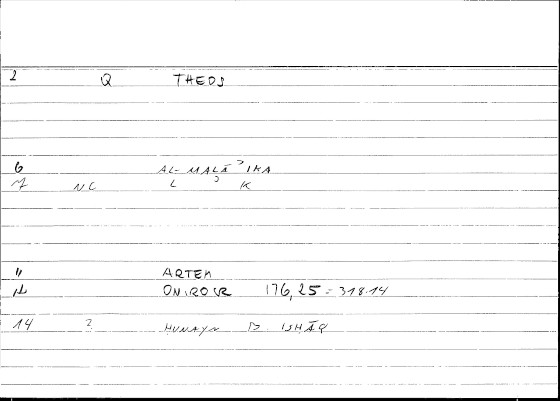 2 Q THEOS
6 AL-MALĀʾIKA
7 NC L ʾ K
11 ARTEM
12 ONIROCR 176,25 = 318.14
14 2 ḤUNAYN B. ISḤĀQ